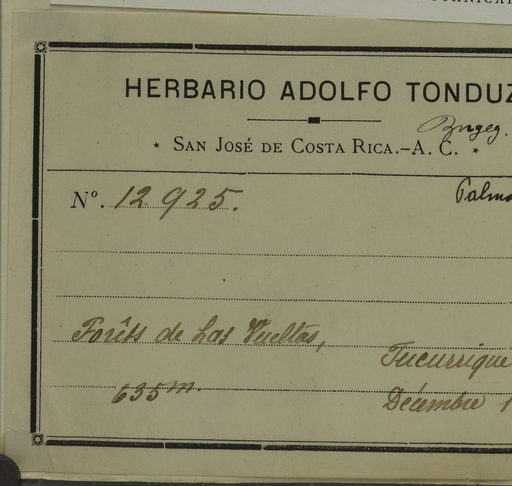 HERBARIO ADOLFO TONDUZ
* SAN JOSÉ DE COSTA RICA.-A. C. *
Nº. 12925.
Forêts de Las Vueltas,
Tucurrique
635m.
Décembre 1